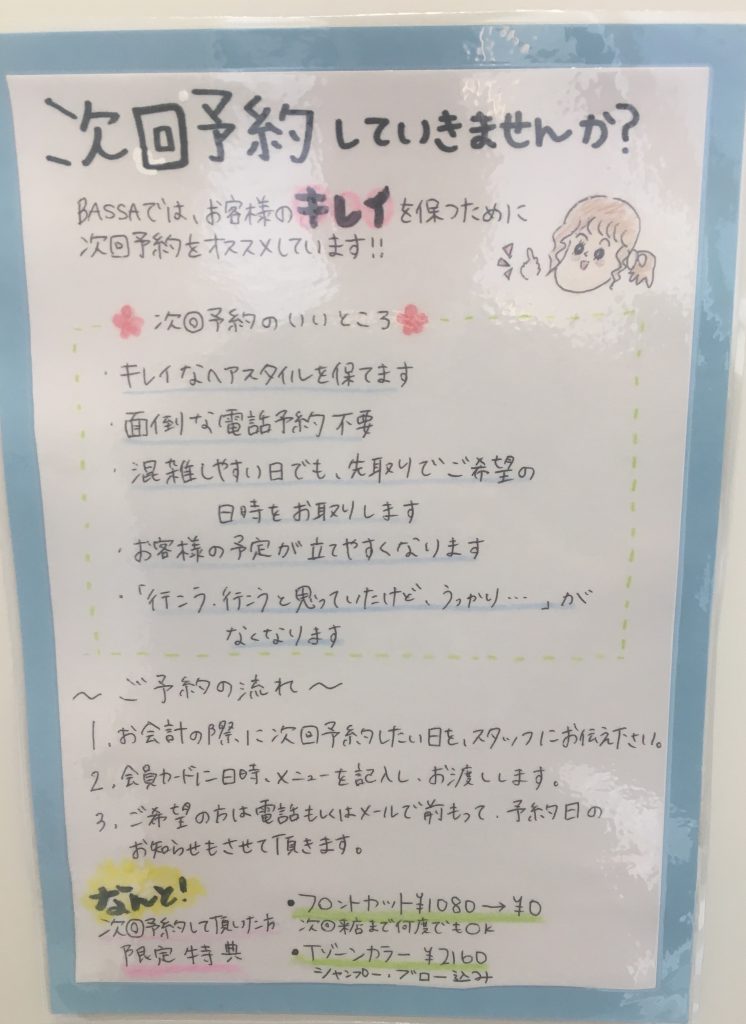 次回予約していきませんか？
BASSAでは、お客様のキレイを保つために
次回予約をオススメしています!!
次回予約のいいところ
・キレイなヘアスタイルを保てます
・面倒な電話予約不要
・混雑しやすい日でも、先取りでご希望の
日時をお取りします
・お客様の予定が立てやすくなります
・「行こう、行こうと思っていたけど、うっかり…」が
なくなります
〜ご予約の流れ〜
1、お会計の際に次回予約したい日を、スタッフにお伝え下さい。
2、会員カードに日時、メニューを記入し、お渡しします。
3、ご希望の方は電話もしくはメールで前もって、予約日の
お知らせもさせて頂きます。
なんと!
次回予約して頂いた方
限定特典
・フロントカット¥1080→¥0
次回来店まで何度でもOK
・Tゾーンカラー ¥2160
シャンプー・ブロー込み